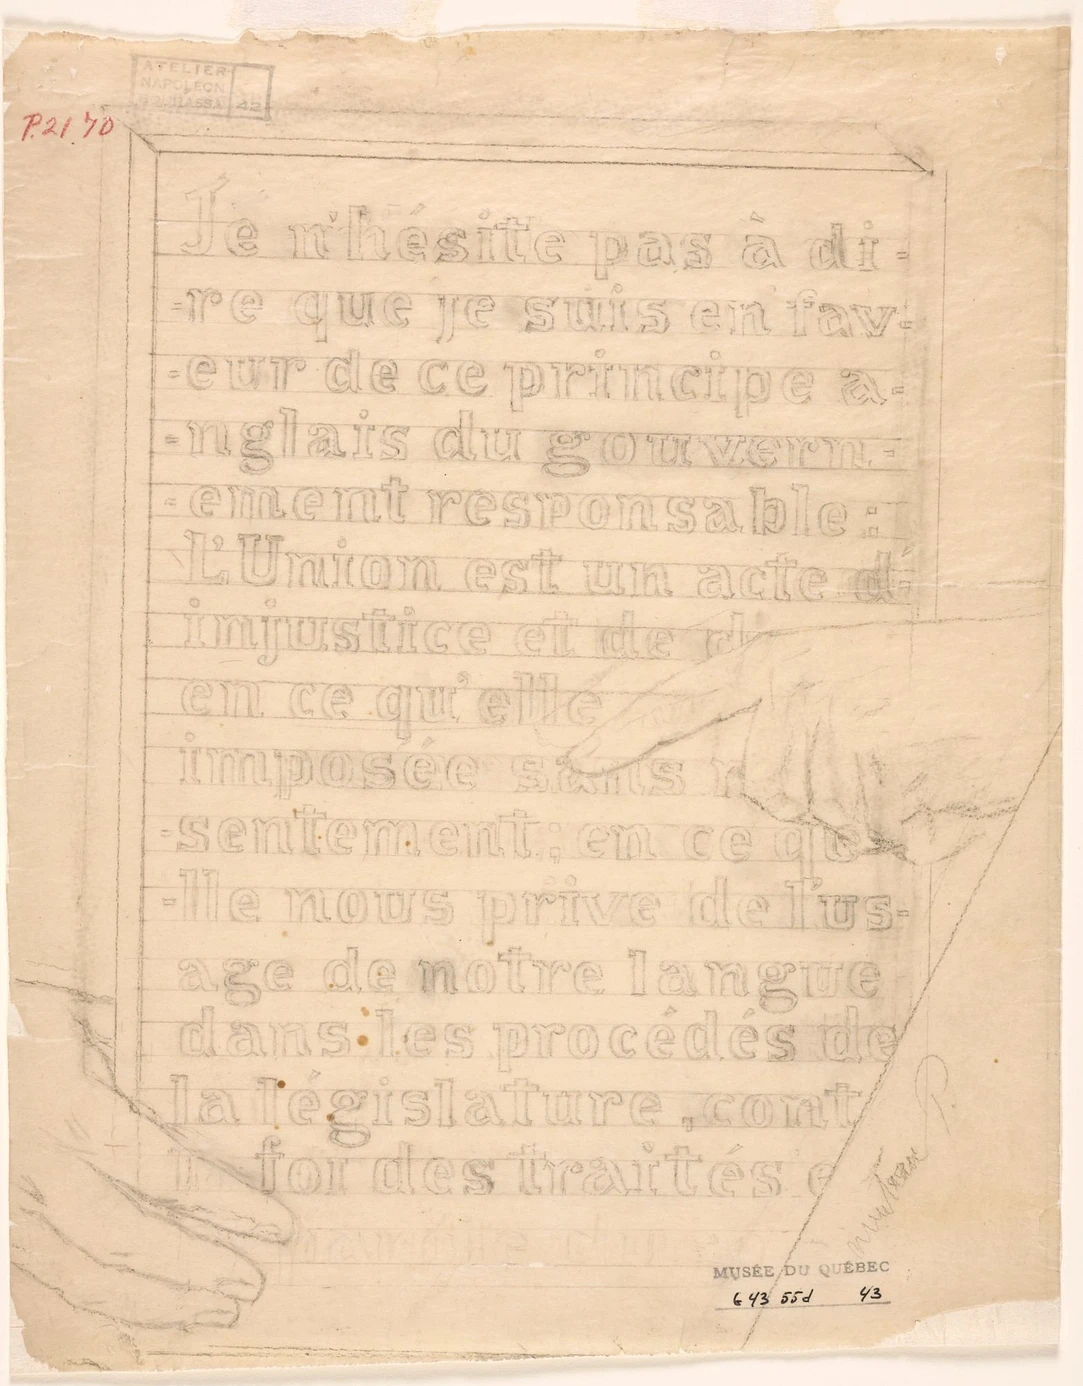 ATELIER
NAPOLEON
BOURASSA
42
P.21.70
Je n'hésite pas à di=
=re que je suis en fav=
=eur de ce principe a=
=nglais du gouvern=
=ement responsable :
L'Union est un acte d'
injustice et de d
en ce qu'elle
imposée sans
=sentement ; en ce qu
=lle nous prive de l'us=
age de notre langue
dans les procédés de
la législature, cont
foi des traités e
MUSÉE DU QUÉBEC
G 43 55d 43